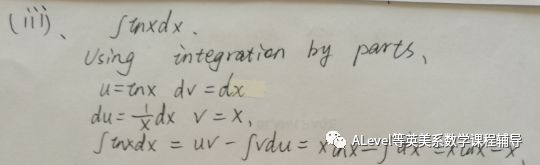 (iii)、 ∫lnxdx.
Using integration by parts,
u=lnx dv=dx
du=1/x dx v=x,
∫lnxdx = uv - ∫vdu = xlnx - ∫dx = xlnx - x
ALevel等英美系数学课程辅导